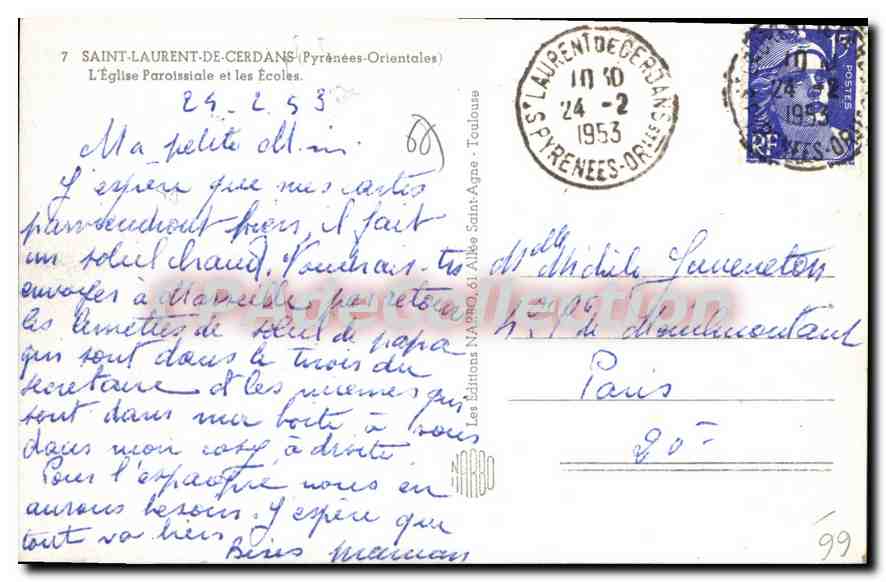 7 SAINT-LAURENT-DE-CERDANS (Pyrénées-Orientales)
L'Église Paroissiale et les Écoles.
24-2-53
Ma petite
J'espère que mes cartes
parviendront bien, il fait
un soleil chaud. Voudrais-tu
envoyer à Marseille par retour
les lunettes de soleil de papa
qui sont dans le tiroir du
secretaire et les miennes qui
sont dans ma boite à vous
dans mon cosy, à droite
Pour l'espagne nous en
aurons besoin. J'espère que
tout va bien
Bises maman
60
Les Éditions NARBO, 61 Allée Saint-Agne - Toulouse
NARBO
ST LAURENT DE CERDANS
10 30
24 -2
1953
PYRENEES-ORles
15F
POSTES
RF
24 -2
1953
PYRENEES-OR
Melle Michèle
Bd de Ménilmontant
Paris
20e
99
APdeCollection